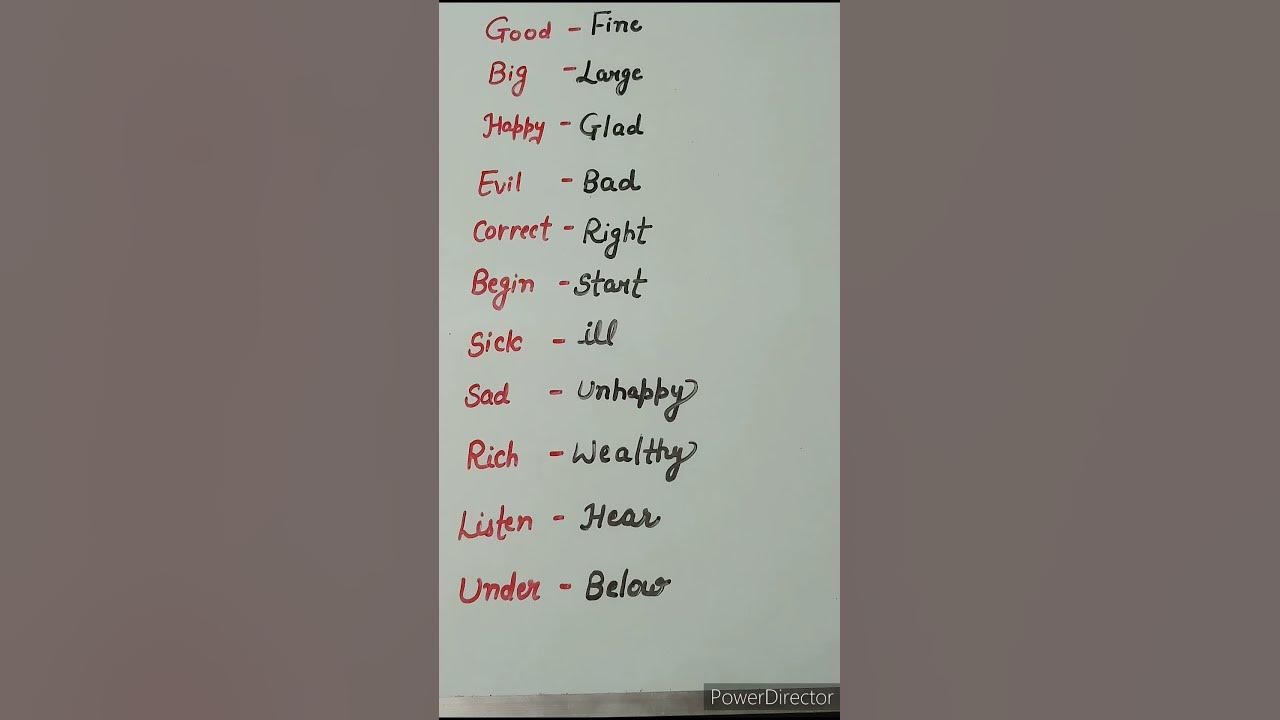 Good - Fine
Big - Large
Happy - Glad
Evil - Bad
Correct - Right
Begin - Start
Sick - ill
Sad - Unhappy
Rich - Wealthy
Listen - Hear
Under - Below
PowerDirector